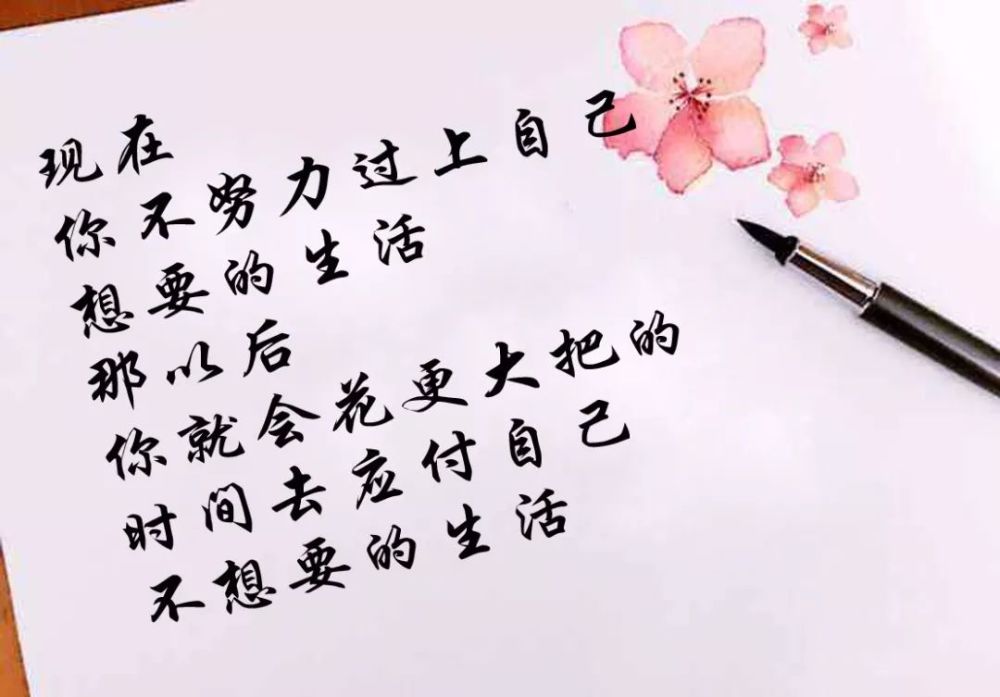 现在
你不努力过上自己
想要的生活
那以后
你就会花更大把的
时间去应付自己
不想要的生活